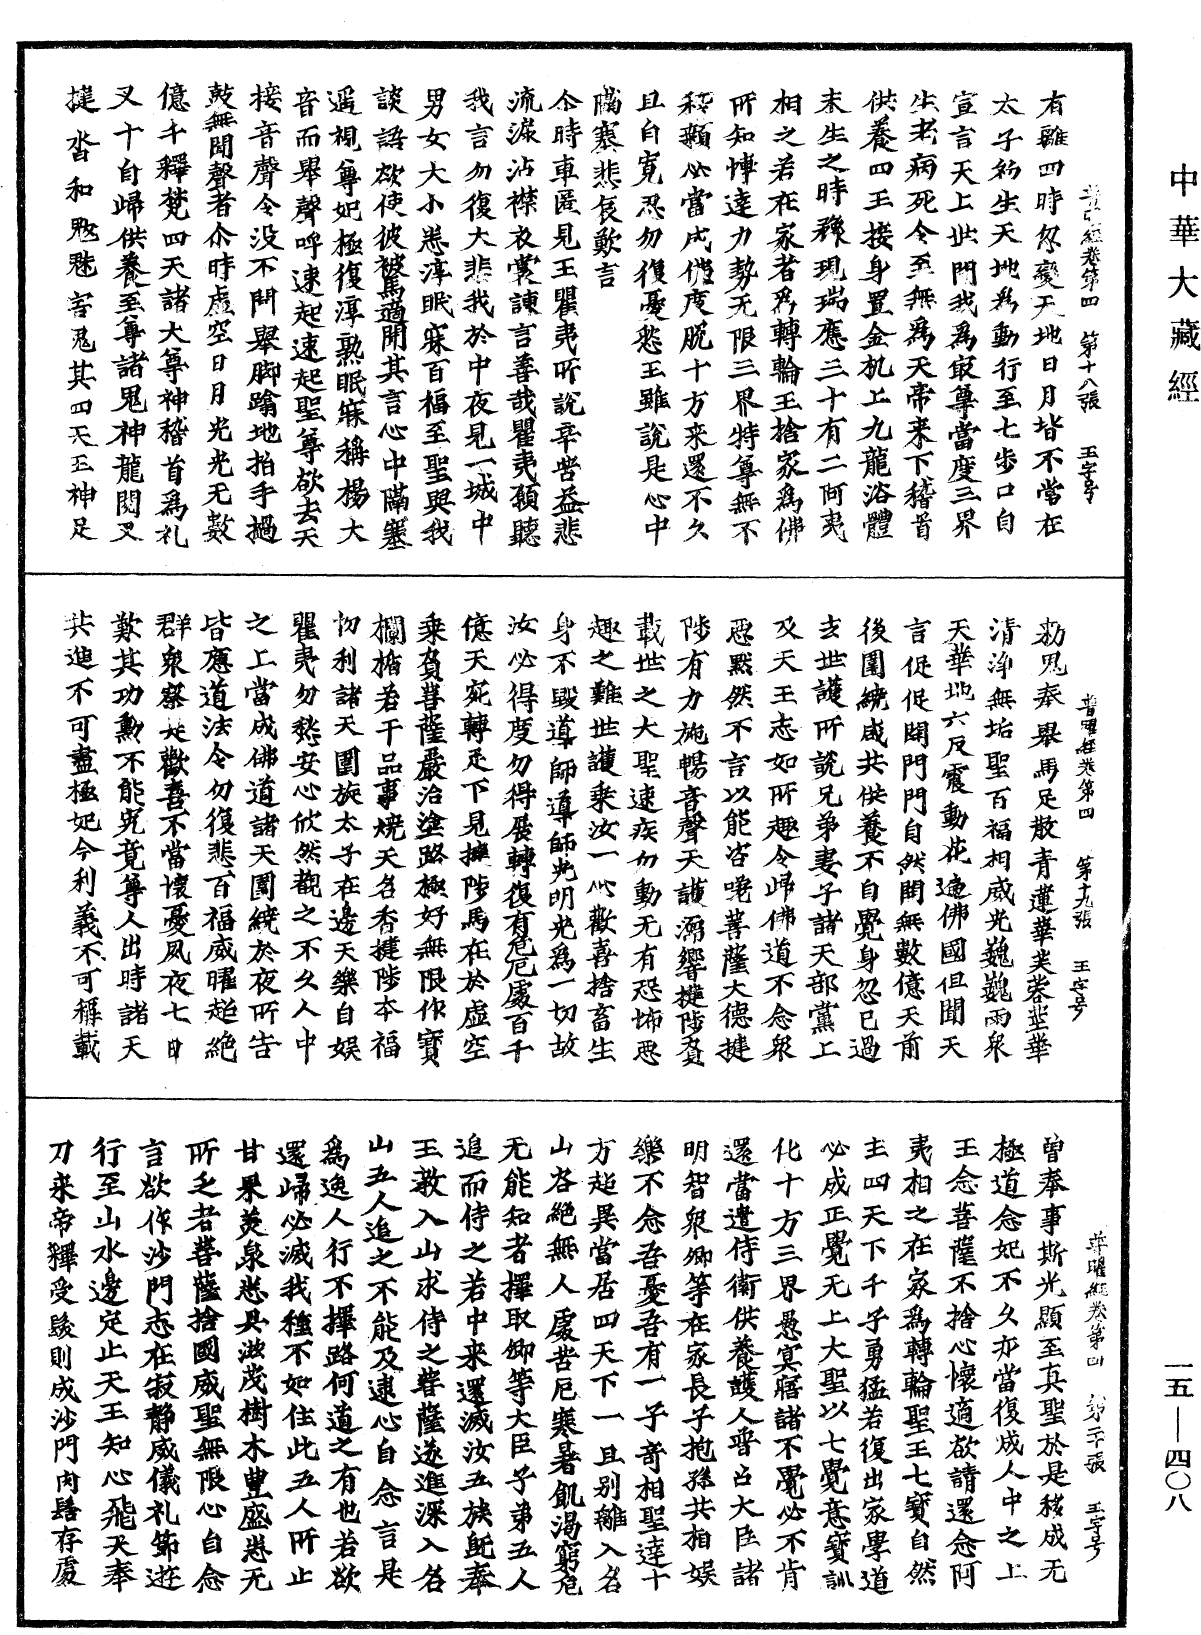 中華大藏經
普曜經卷第四　第十八張　王字号
有離四時忽變天地日月皆不當在
太子初生天地為動行至七步口自
宣言天上世間我為最尊當度三界
生老病死令至無為天帝来下稽首
供養四王接身置金机上九龍浴體
末生之時瑞現瑞應三十有二阿夷
相之若在家者為轉輪王捨家為佛
所知博達力勢无限三界特尊無不
稱類必當成佛度脫十方来還不久
且自寬忍勿復憂愁王雖說是心中
隔塞悲哀歎言
尒時車匿見王瞿夷所說辛苦益悲
流淚沾襟衣裳諫言善哉瞿夷願聽
我言勿復大悲我於中夜見一城中
男女大小悉淳眠寐百福至聖與我
談語欲使彼被馬適聞其言心中隔塞
遥視尊妃極復淳熟眠寐稱揚大
音而舉聲呼速起速起聖尊欲去天
接音聲令没不聞舉脚蹋地拍手撾
鼓無聞聲者尒時虛空日月光光无數
億千釋梵四天諸大尊神稽首為礼
叉十自歸供養至尊諸鬼神龍閱叉
揵沓和魃魅害鬼其四天王神足
普曜經卷第四　第十九張　王字号
勑鬼奉舉馬足散青蓮華芙蓉莖華
清淨無垢聖百福相威光巍巍雨衆
天華地六反震動花遍佛國但聞天
言促促開門門自然開無數億天前
後圍繞咸共供養不自覺身忽已過
去世護所說兄弟妻子諸天部黨上
及天王志如所趣令歸佛道不念衆
惡默然不言以能咨嗟菩薩大德揵
陟有力施暢音聲天護溺響揵陟賓
載世之大聖速疾勿動无有恐怖惡
趣之難世護乗汝一心歡喜捨畜生
身不毀導師導師光明光為一切故
汝必得度勿得展轉復有危厄處百千
億天宛轉足下見揵陟馬在於虛空
乗負菩薩嚴治塗路極好無限作寶
欄楯若干品事燒天名香揵陟本福
忉利諸天圍旋太子在邊天樂自娛
瞿夷勿愁安心欣然觀之不久人中
之上當成佛道諸天圍繞於夜所告
皆應道法令勿復悲百福威曜超絕
群衆察是歡喜不當懷憂夙夜七日
歎其功勳不能究竟尊人出時諸天
共進不可盡極妃今利義不可稱載
普曜經卷第四　第二十張　王字号
曽奉事斯光顯至真聖於是稜成无
極道念妃不久亦當復成人中之上
王念菩薩不捨心懷適欲請還念阿
夷相之在家為轉輪聖王七寶自然
主四天下千子勇猛若復出家學道
必成正覺无上大聖以七覺意寶訓
化十方三界愚冥寤諸不覺必不肯
還當遣侍衛供養護人普召大臣諸
明智衆卿等在家長子抱孫共相娛
樂不念吾憂吾有一子奇相聖達十
方超異當居四天下一旦別離入名
山谷絕無人處苦厄寒暑飢渴窮危
无能知者擇取卿等大臣子弟五人
追而侍之若中来還滅汝五族旣奉
王敎入山求侍之菩薩遂進深入名
山五人追之不能及逮心自念言是
為逸人行不擇路何道之有也若欲
還歸必滅我種不如住此五人所止
甘果美泉悉具滋茂樹木豊盛悉无
所乏者菩薩捨國威聖無限心自念
言欲作沙門志在寂靜威儀礼節遊
行至山水邊定止天王知心飛天奉
刀来帝釋受髮則成沙門肉髻存處
一五—四〇八